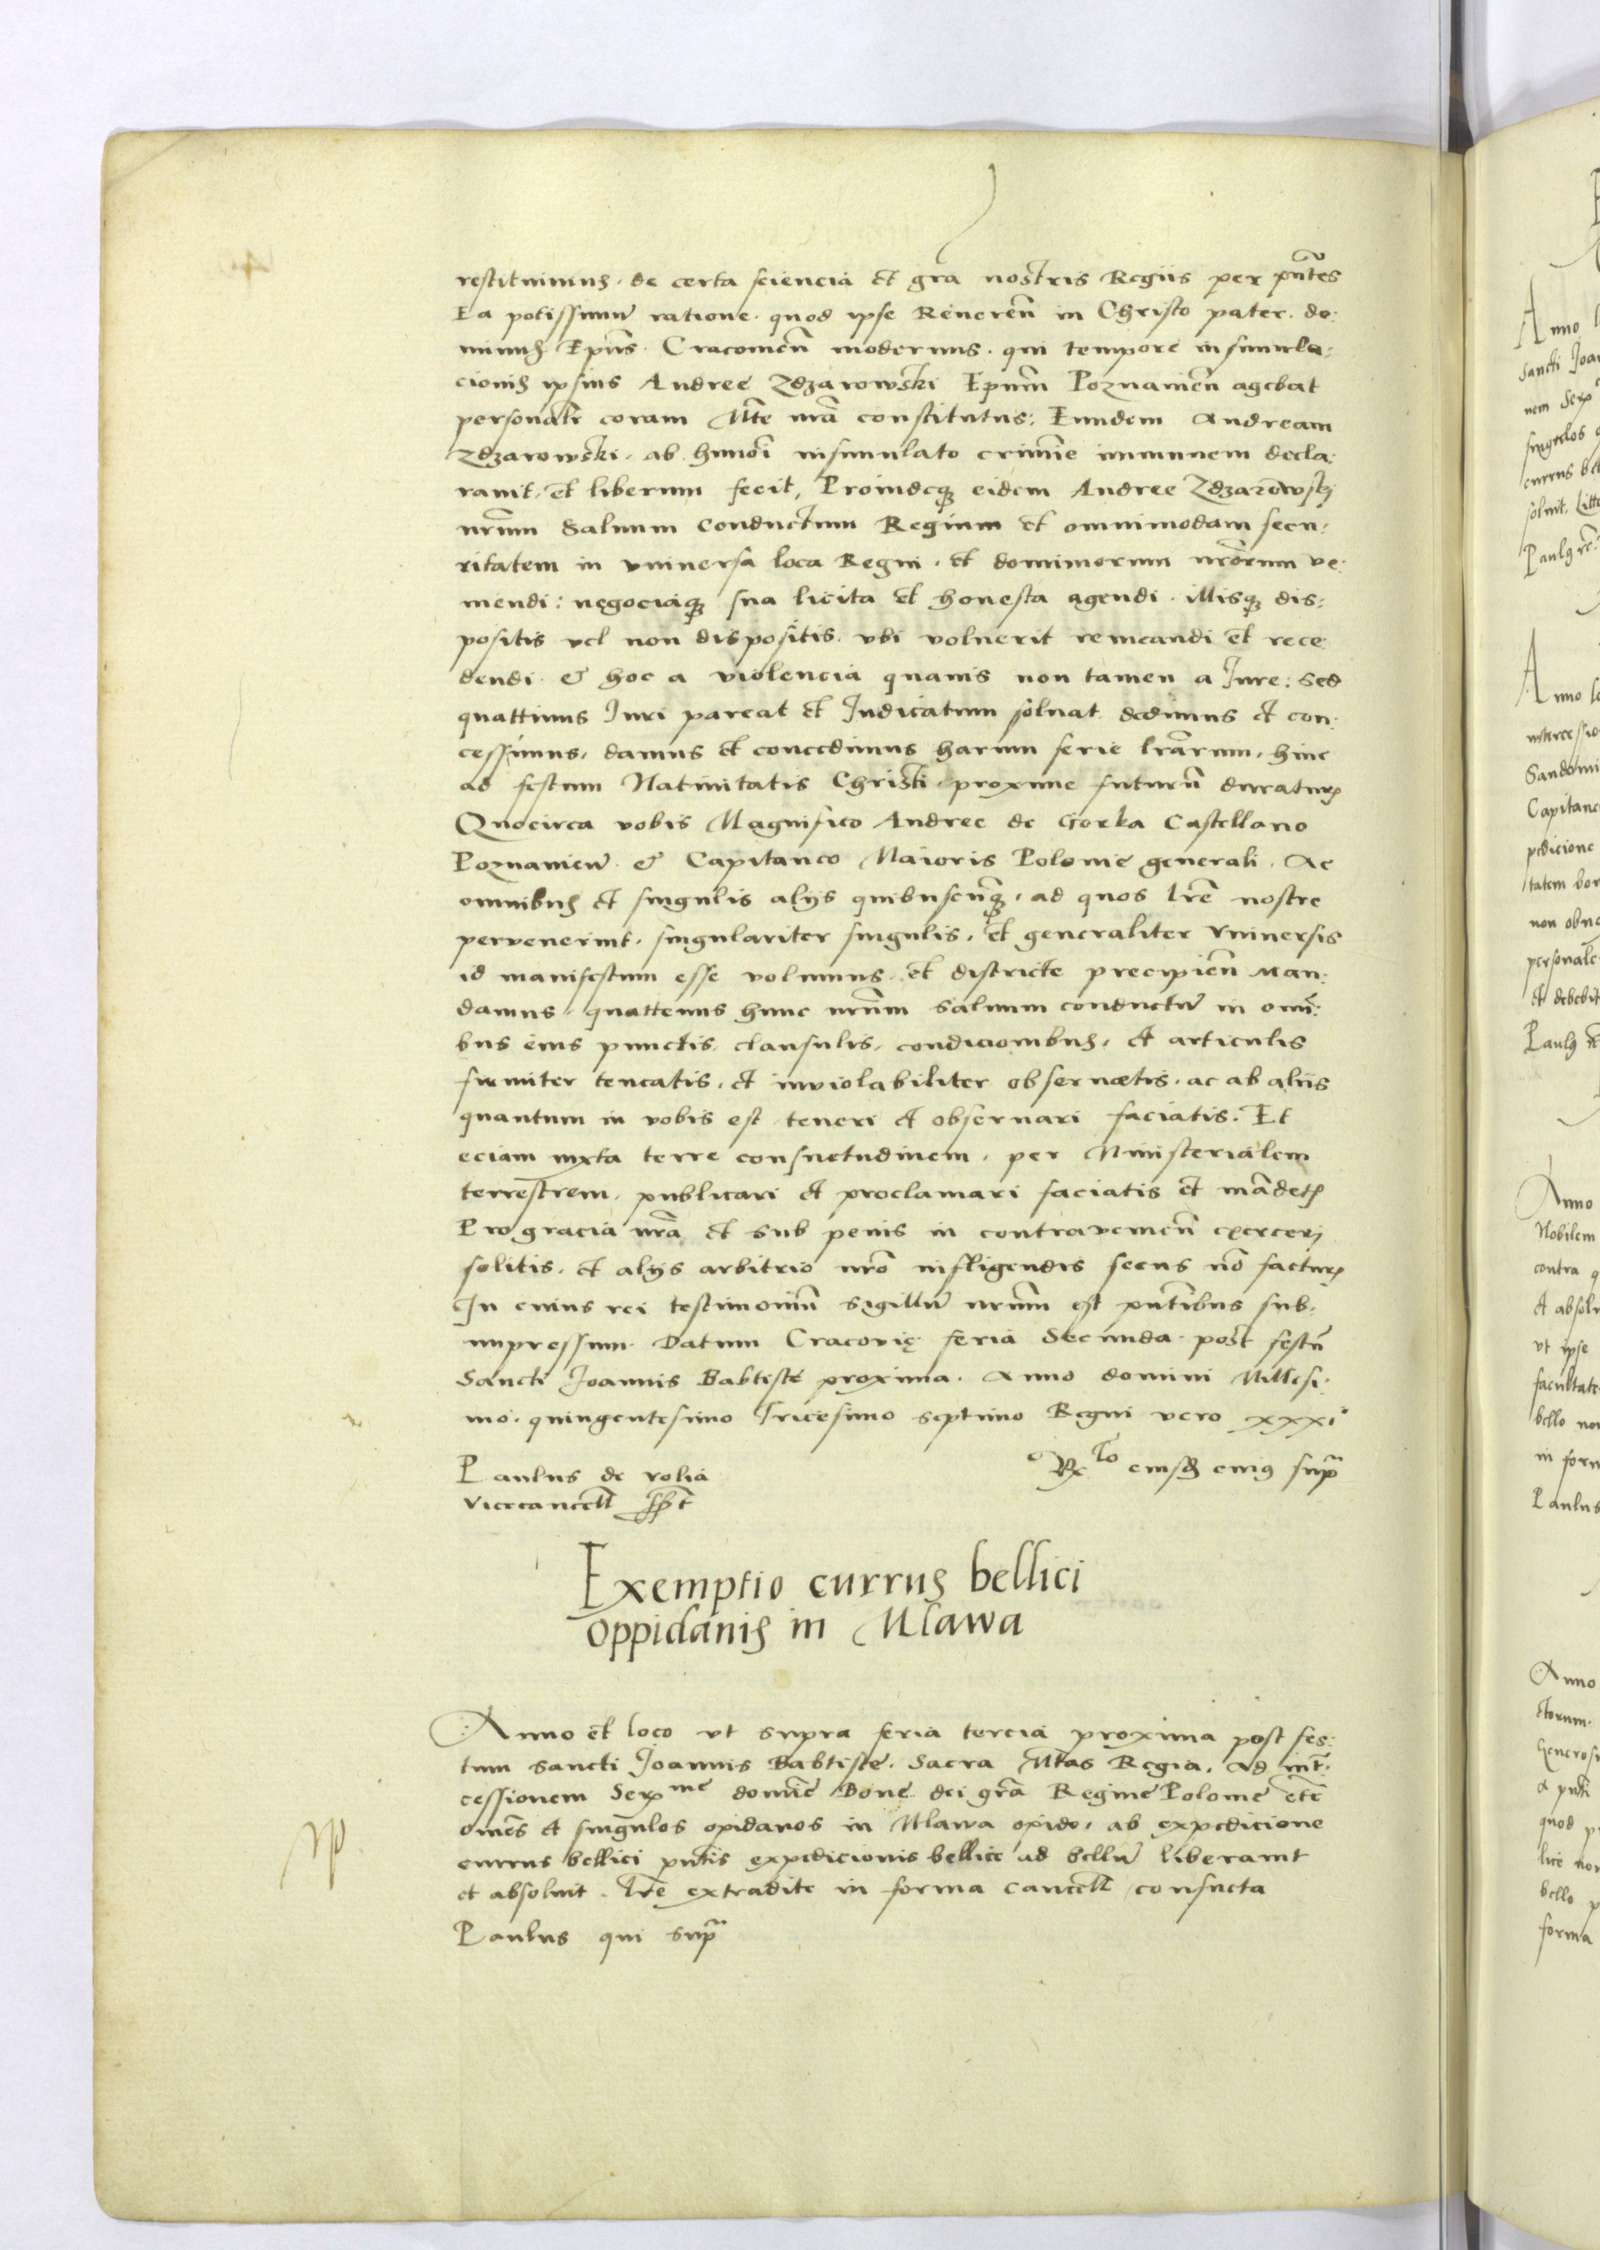 restituimus. de certa sciencia et gra nostris Regiis per pntes
Ea potissimum ratione. quod ipse Reueren in Christo pater. do:
minus Epus. Cracouien modernus. qui tempore insimula:
cionis ipsius Andree Zdzarowski Epum Poznanien agebat
personalr coram Mte nra constitutus: Eundem Andream
Zdzarowski. ab humoi insimulato crimine immunem decla:
rauit. et liberum fecit, Proindeq3 eidem Andree Zdzarowski
nrum Saluum Conductum Regium et omnimodam secu:
ritatem in vniuersa loca Regni. et dominiorum nrorum ve:
niendi: negociaq3 sua licita et honesta agendi. illisq3 dis:
positis vel non dispositis. vbi voluerit remeandi et rece:
dendi. & hoc a violencia quauis non tamen a Jure: Sed
quattinus Juri pareat et Judicatum soluat dedimus et con:
cessimus, damus et concedimus harum serie lrarum, hinc
ad festum Natiuitatis Christi. proxime futurum duratur
Quocirca vobis Magnifico Andree de Gorka Castellano
Poznanien & Capitaneo Maioris Polonie generali. Ac
omnibus et singulis alijs quibuscunq3, ad quos lre nostre
pervenerint. singulariter singulis, et generaliter vniuersis
id manifestum esse volumus. et districte precipien Man:
damus. quattenus hunc nrum Saluum conductum in omni:
bus eius punctis, clausulis, condicionibus, et articulis
firmiter teneatis, et inviolabiliter obseruetis. ac ab aliis
quantum in vobis est teneri et obseruari faciatis. Et
eciam iuxta terre consuetudinem. per Ministerialem
terrestrem. publicari et proclamari faciatis et mandetis
Pro gracia nra et sub penis in contravenien exerceri
solitis. et alijs arbitrio nro infligendis secus no factur
In cuius rei testimonium sigillum nrum est pntibus sub:
impressum. Datum Cracovię feria Secunda. post festum
Sancti Joannis Babtiste proxima. Anno domini Millesi:
mo. quingentesimo Tricesimo septimo Regni vero xxxi°
Paulus de volia
Vicecancell sspt
Rto eiusd cuius supra
Exemptio currus bellici
oppidanis in Mlawa
Anno et loco vt supra feria tercia proxima post fes:
tum Sancti Joannis Babtiste. Sacra Mtas Regia. ad int:
cessionem Serme domine Bone dei gra Regine Polonie etc
omnes et singulos opidanos in Mlawa opido, ab expedicione
currus bellici pntis expedicionis bellice ad bellum liberauit
et absoluit. lre extradite in forma cancell consueta
Paulus qui supra